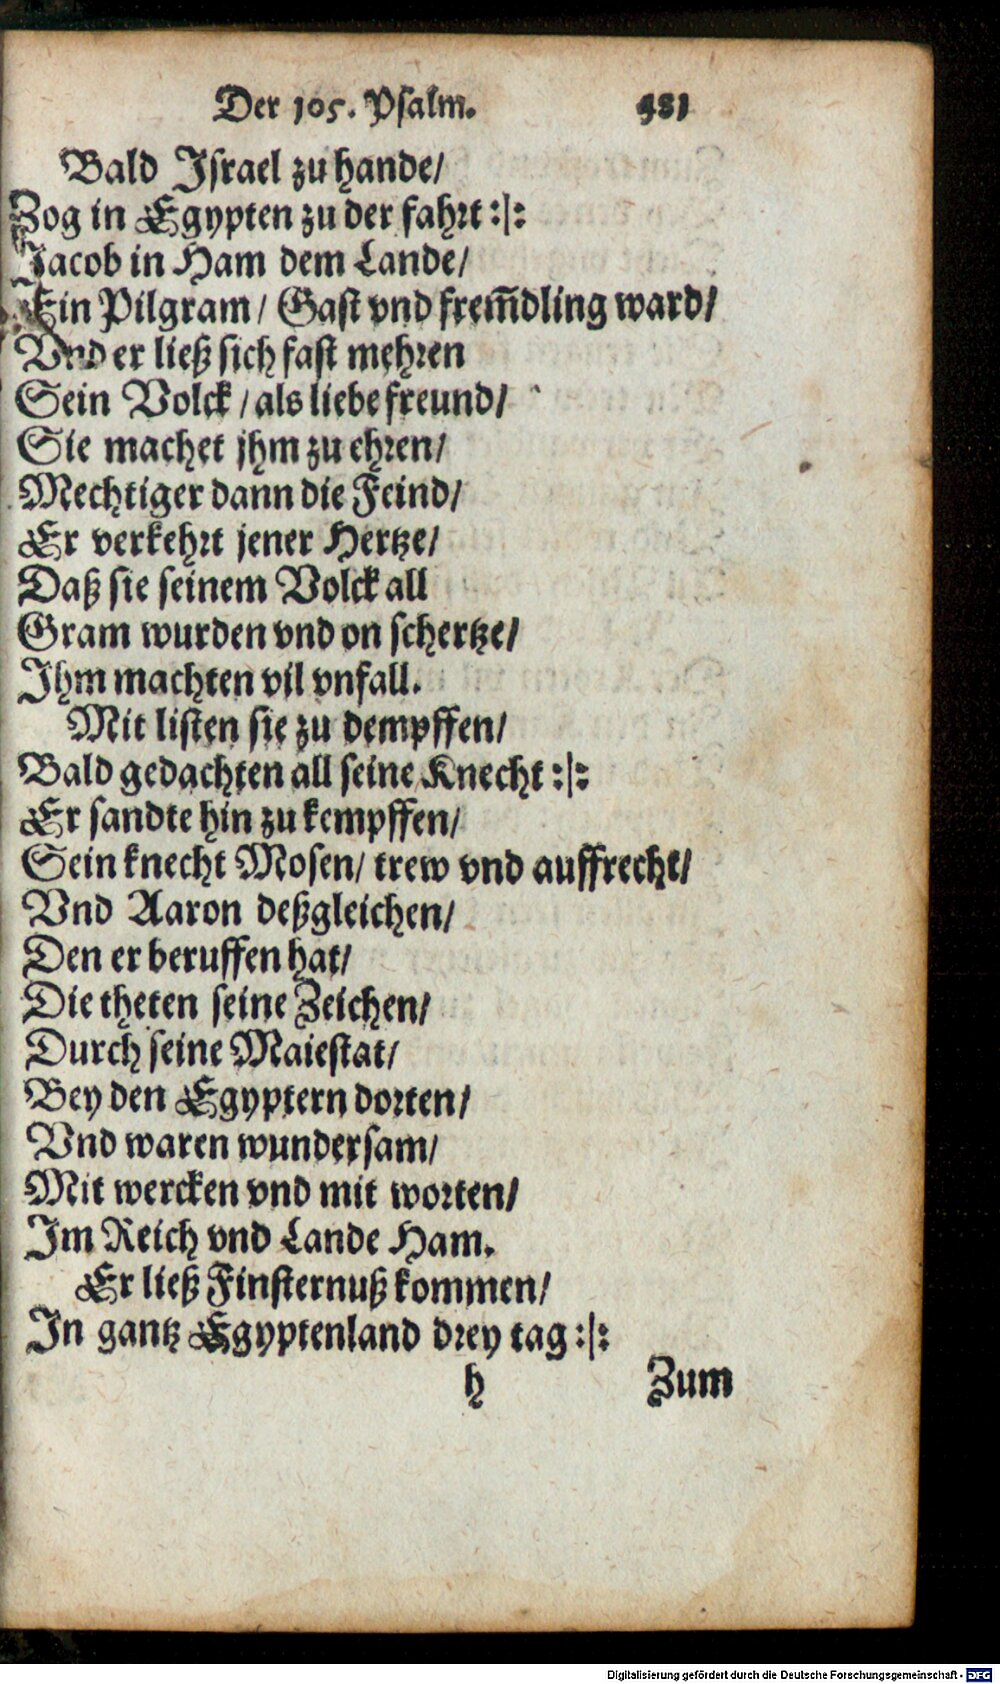 Der 105. Psalm. 481
Bald Israel zu hande/
Zog in Egypten zu der fahrt :|:
Jacob in Ham dem Lande/
Ein Pilgram / Gast vnd frem̃dling ward/
Vnd er ließ sich fast mehren
Sein Volck / als liebe freund/
Sie machet jhm zu ehren/
Mechtiger dann die Feind/
Er verkehrt jener Hertze/
Daß sie seinem Volck all
Gram wurden vnd on schertze/
Ihm machten vil vnfall.
Mit listen sie zu dempffen/
Bald gedachten all seine Knecht :|:
Er sandte hin zu kempffen/
Sein knecht Mosen/ trew vnd auffrecht/
Vnd Aaron deßgleichen/
Den er beruffen hat/
Die theten seine Zeichen/
Durch seine Maiestat/
Bey den Egyptern dorten/
Vnd waren wundersam/
Mit wercken vnd mit worten/
Im Reich vnd Lande Ham.
Er ließ Finsternuß kommen/
In gantz Egyptenland drey tag :|:
h Zum
Digitalisierung gefördert durch die Deutsche Forschungsgemeinschaft - DFG